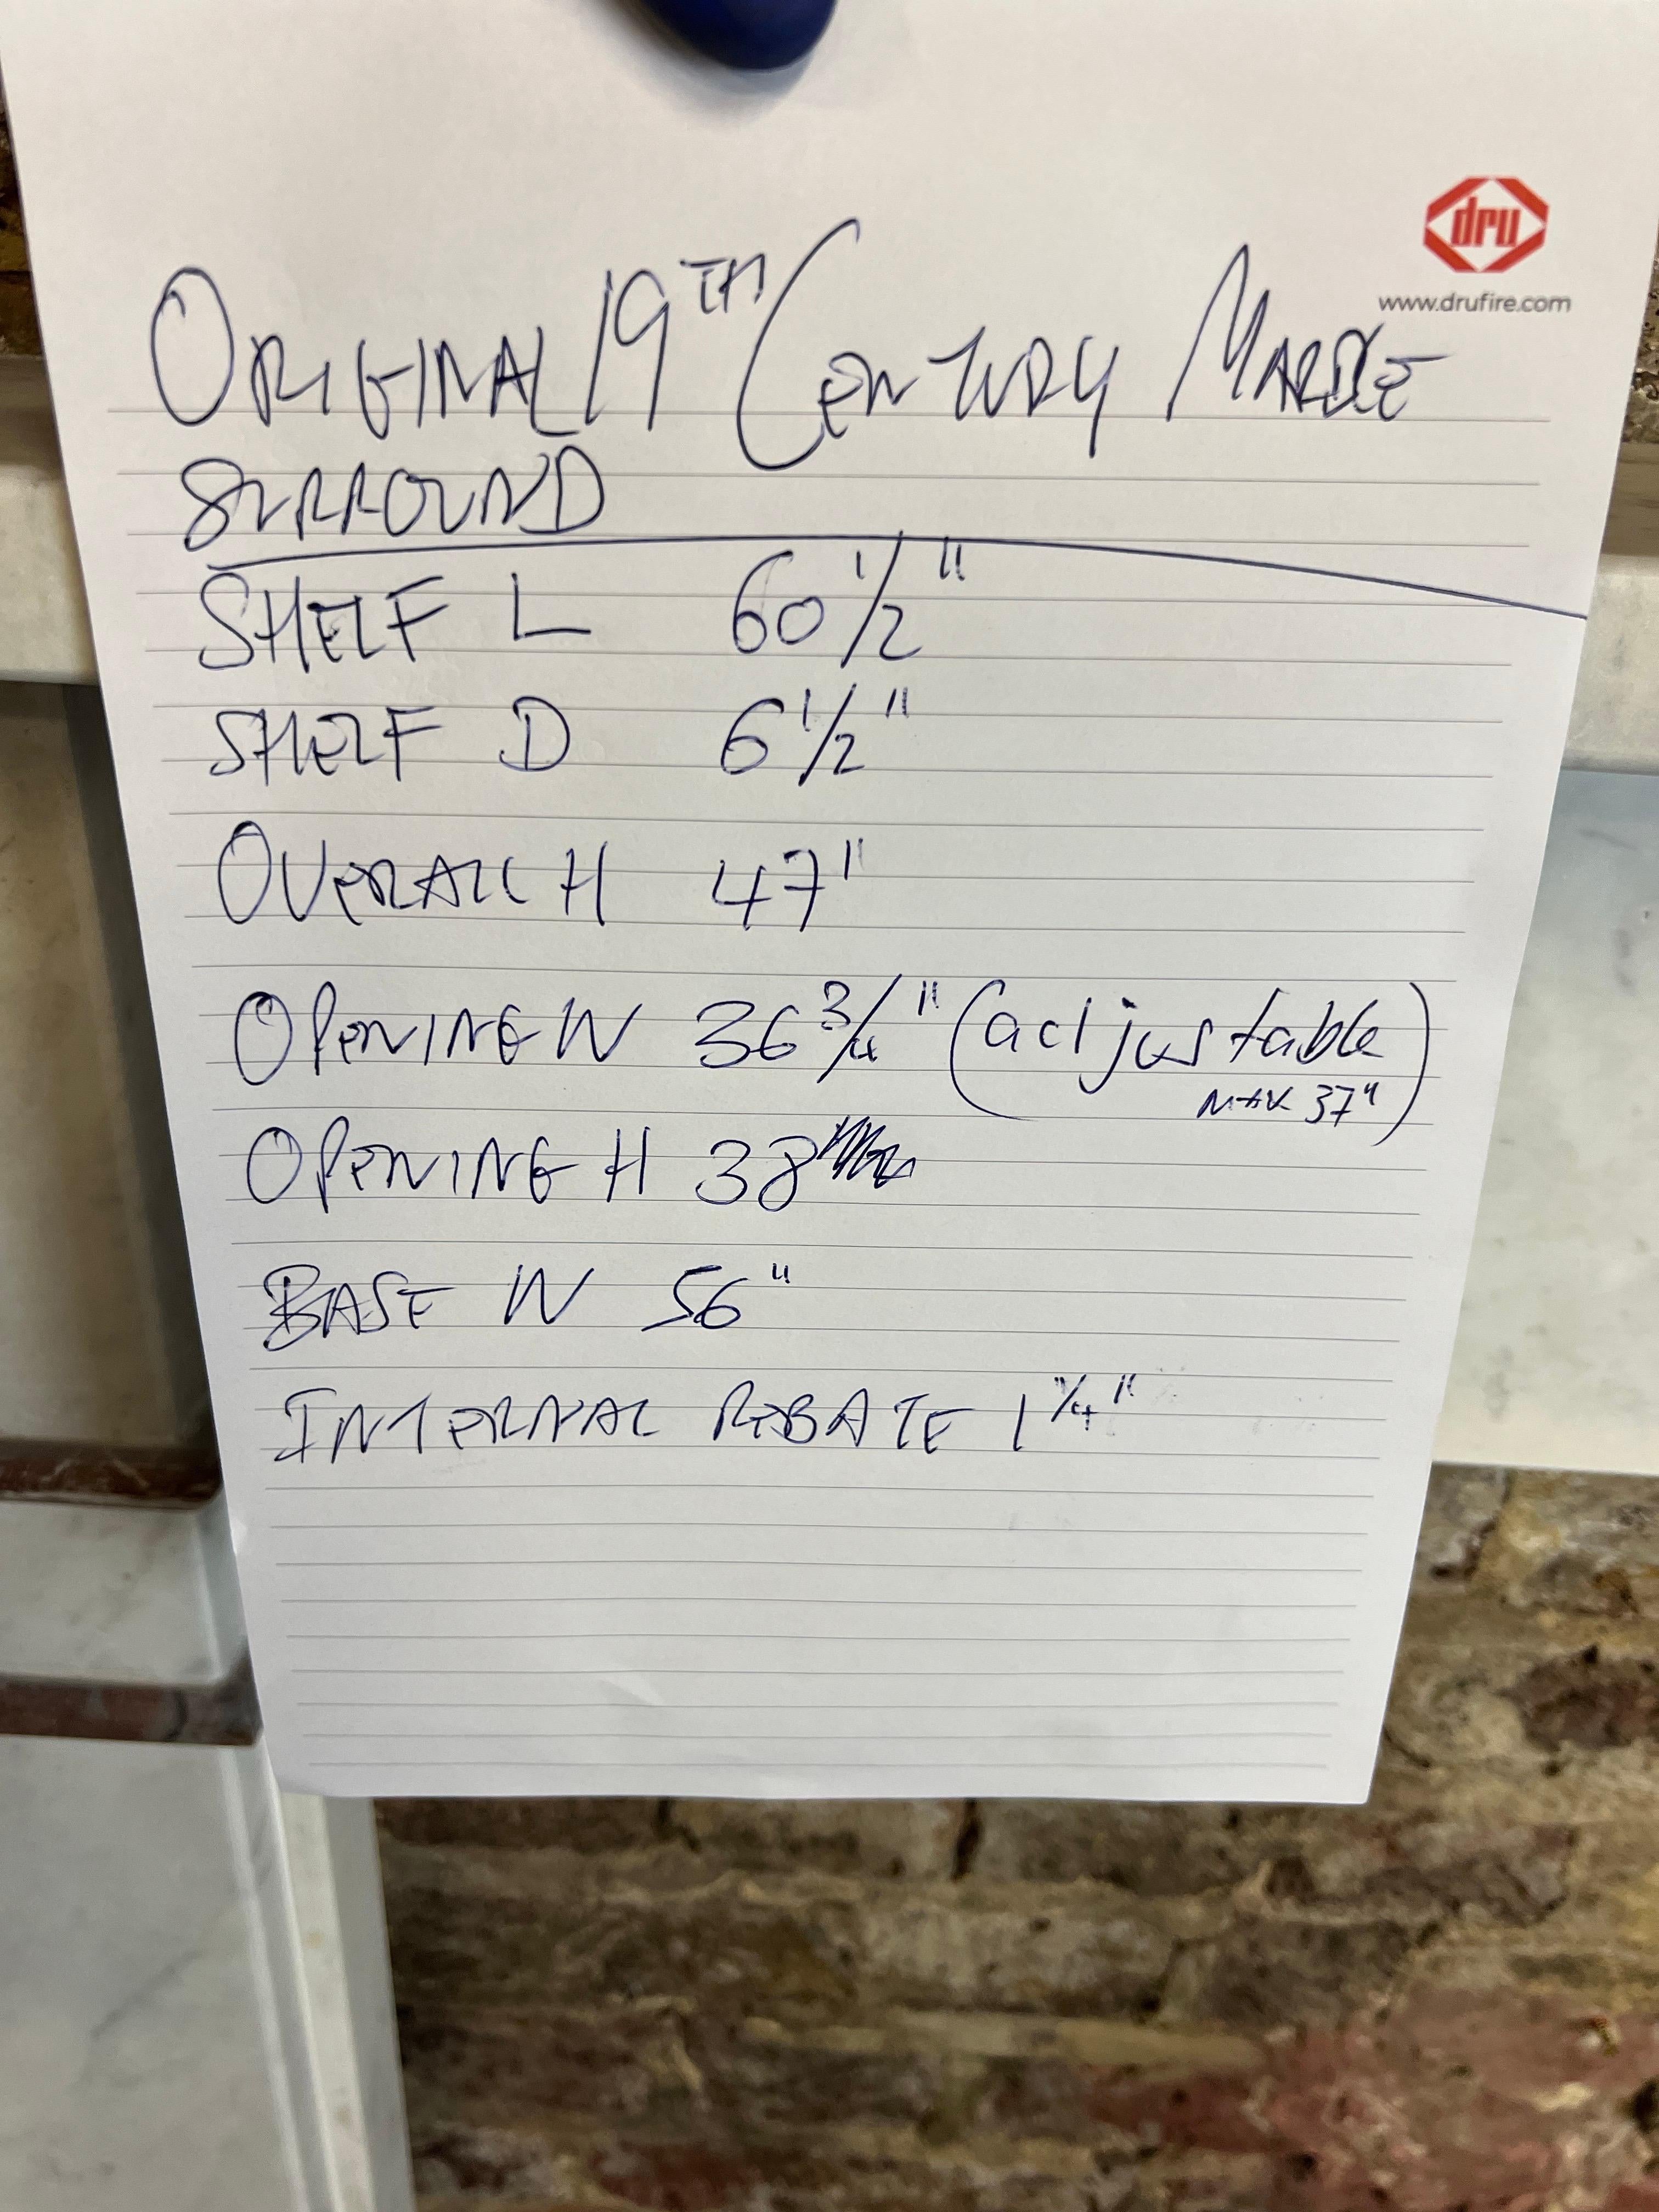 dru
www.drufire.com
ORIGINAL 19TH CENTURY MARBLE
SURROUND
SHELF L 60 1/2"
SHELF D 6 1/2"
OVERALL H 47"
OPENING W 36 3/4" (adjustable
MAX 37")
OPENING H 38
BASE W 56"
INTERNAL REBATE 1 1/4"